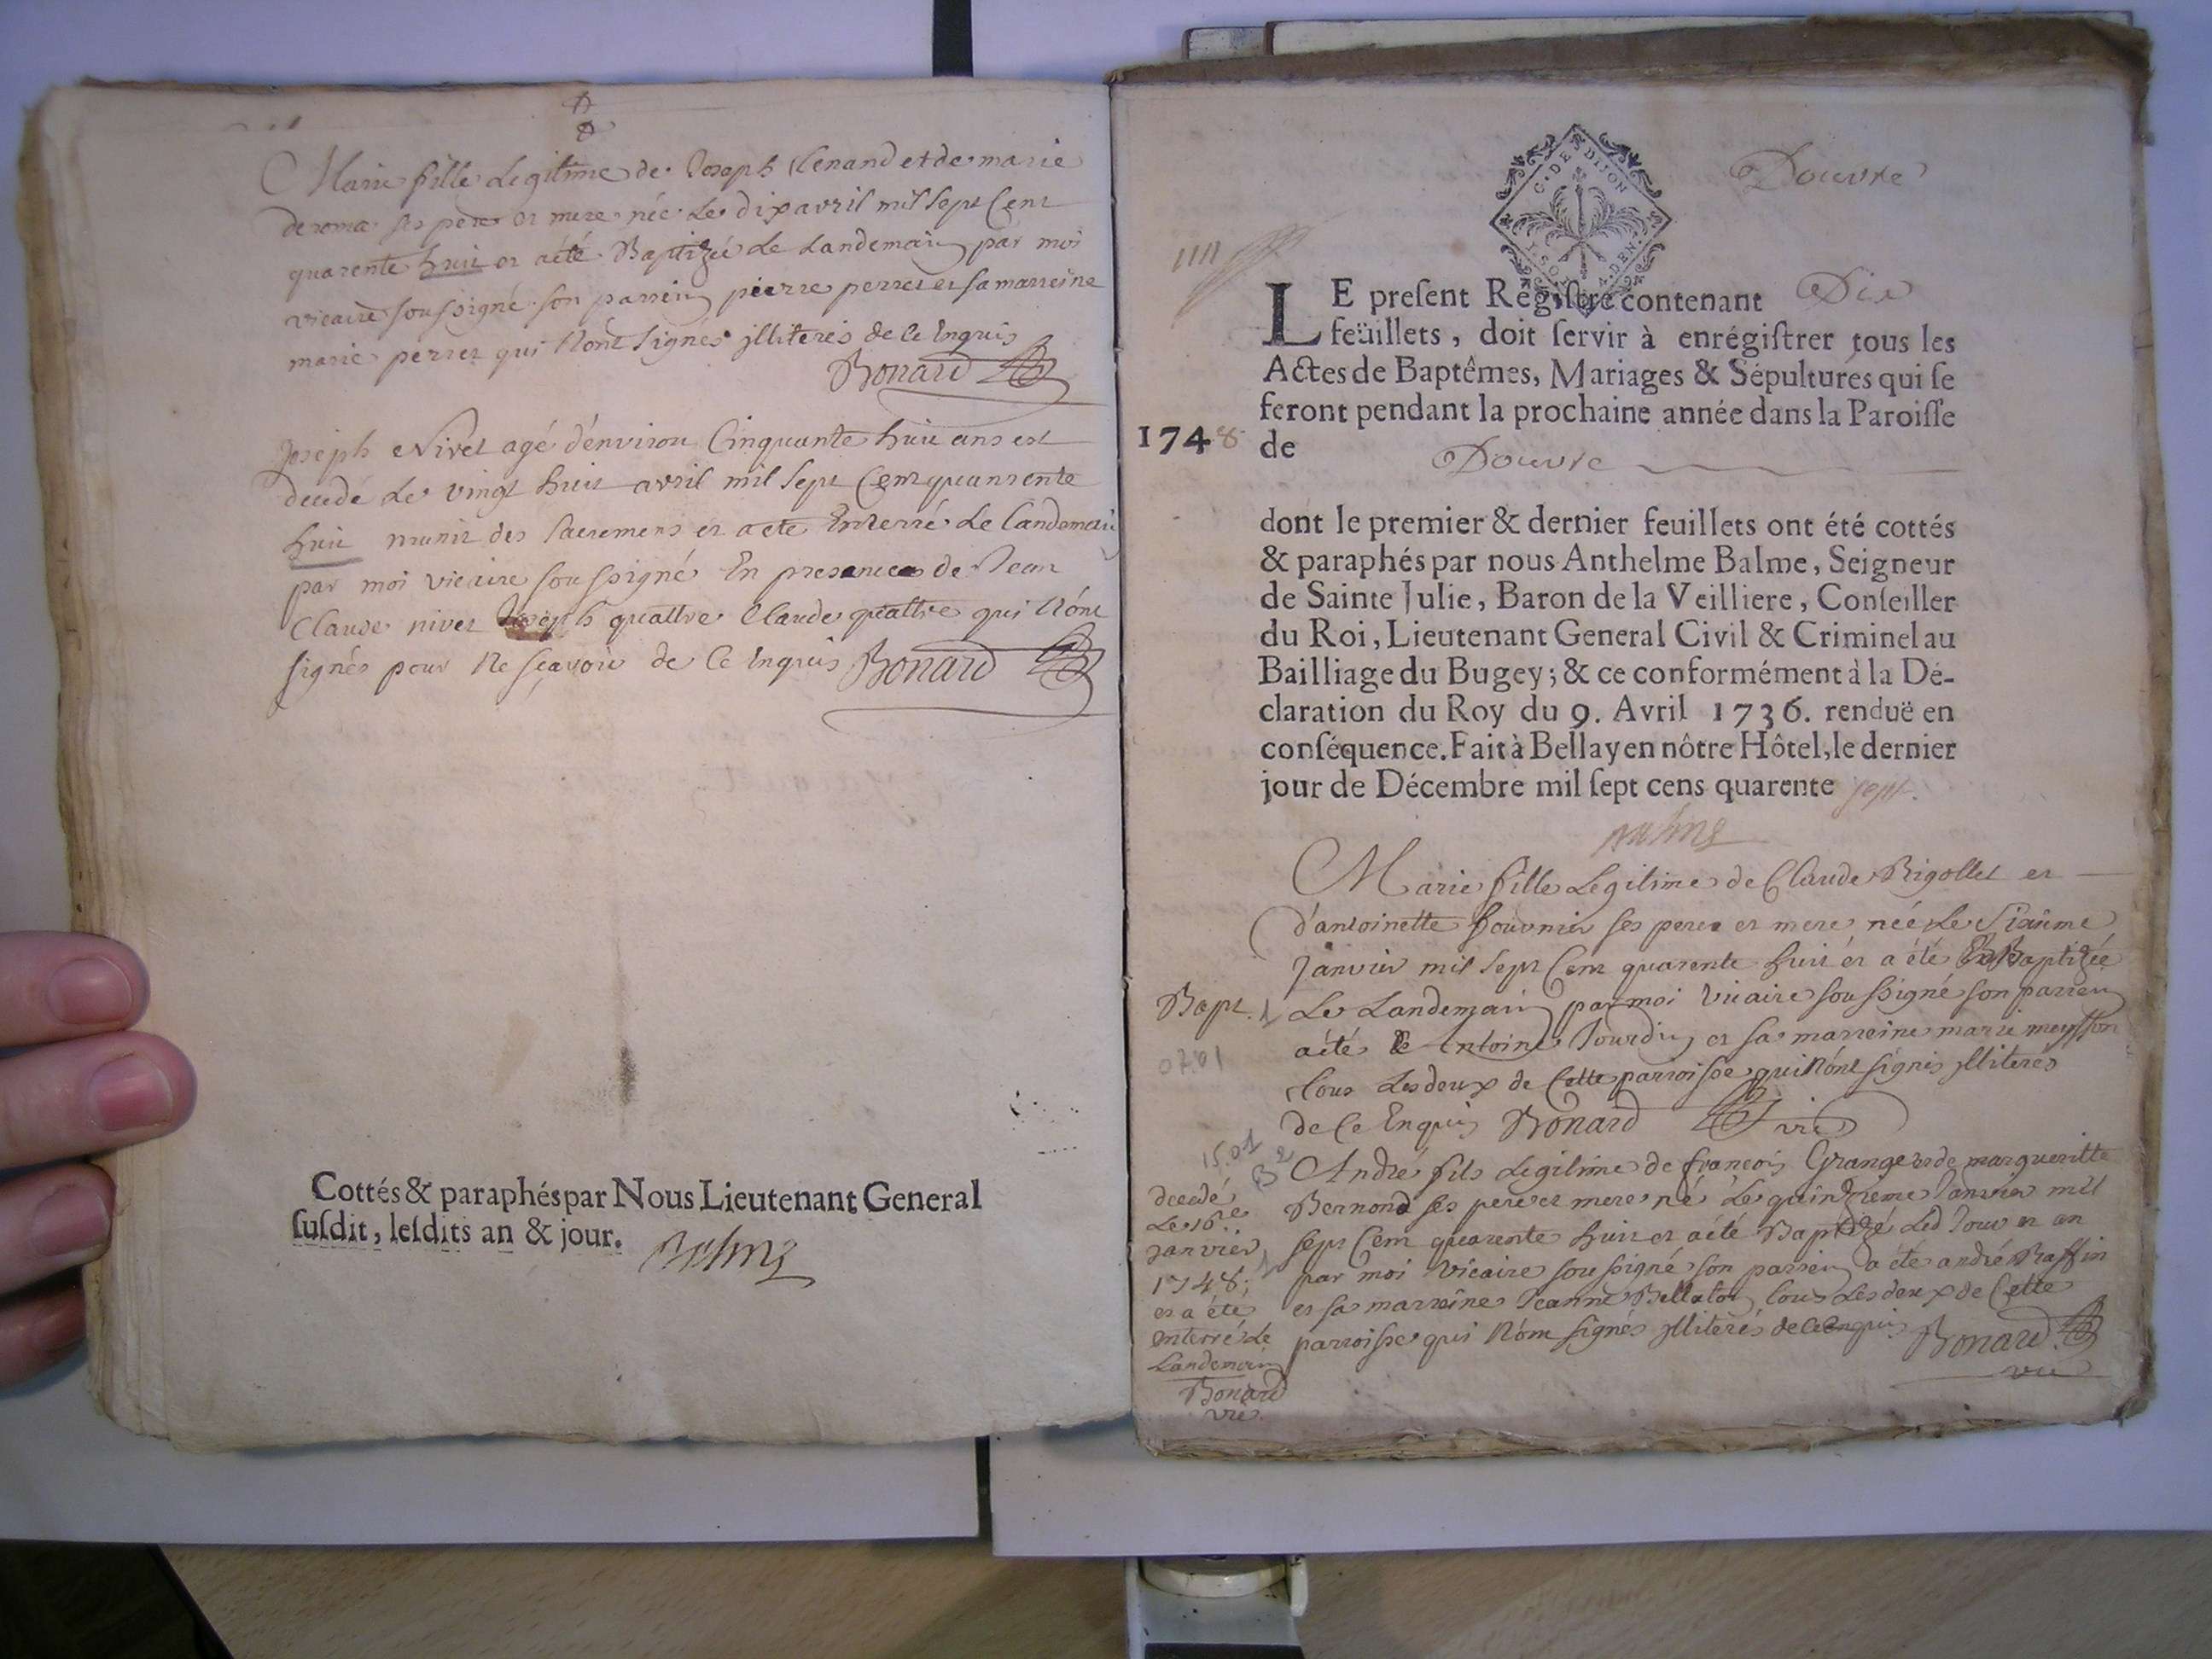 Marie fille Legitime de Joseph Renand et de marie
deroma ses pere et mere née Le dix avril mil sept Cent
quarente huit et a été Baptizée Le Landemain par moi
vicaire soussigné son parrein pierre perret et sa marreine
marie perret qui Nont signés illiterés de ce Enquis
Bonard
Joseph Nivet agé d'environ Cinquante huit ans est
decedé Le vingt huit avril mil sept Cent quanrente
huit munit des sacremens et a ete Enterré Le Landemain
par moi vicaire soussigné En presance de Jean
Claude nivet Joseph quattre Claude quattre qui N'ont
signés pour Ne sçavoir de Ce Enquis Bonard
Cottés & paraphés par Nous Lieutenant General
susdit, lesdits an & jour. Balme
Douvre
G. DE DIJON
LE present Régistre contenant Dix
feüillets, doit servir à enrégistrer tous les
Actes de Baptêmes, Mariages & Sépultures qui se
feront pendant la prochaine année dans la Paroisse
1748 de Douvre
dont le premier & dernier feuillets ont été cottés
& paraphés par nous Anthelme Balme, Seigneur
de Sainte Julie, Baron de la Veilliere, Conseiller
du Roi, Lieutenant General Civil & Criminel au
Bailliage du Bugey; & ce conformément à la Dé-
claration du Roy du 9. Avril 1736. renduë en
conséquence. Fait à Bellay en nôtre Hôtel, le dernier
jour de Décembre mil sept cens quarente sept.
Balme
Marie fille Legitime de Claude Rigollet et
d'antoinette fournier ses pere et mere née Le Sixiême
Janvier mil sept Cent quarente huit et a été Baptizée
Bapt. 1 Le Landemain par moi Vicaire soussigné son parrein
07.01
a été Antoine Jourdin et sa marreine marie meysson
tous Les deux de Cette parroisse qui N'ont signés illiterés
de Ce Enquis Bonard vic
15.01
B 2
André fils Legitime de francois Grange et de margueritte
Bernond ses pere et mere né Le quinzieme Janvier mil
sept Cent quarente huit et a été Baptizé Led Jour et an
par moi Vicaire soussigné son parrein a été andré Raffin
et sa marreine Jeanne Bellaton tous Les deux de Cette
parroisse qui N'ont signés illiterés de ce Enquis Bonard
vic
decedé
Le 16re
janvier
1748;
et a été
enterré Le
Landemain
Bonard
vic.